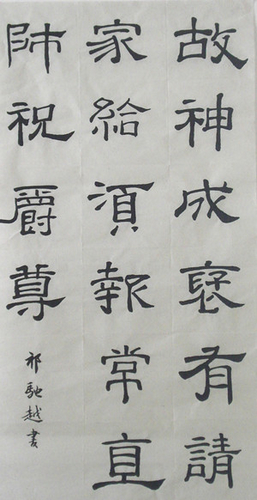 故神成褒有請
家給須報常直
師祝爵尊
祁馳越書